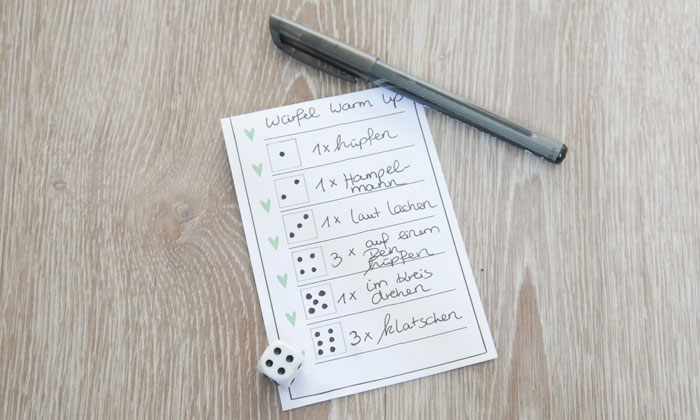 Würfel Warm Up
1x hüpfen
1x Hampel-
mann
1x laut lachen
3x auf einem
Bein
hüpfen
1x im Kreis
drehen
3x klatschen